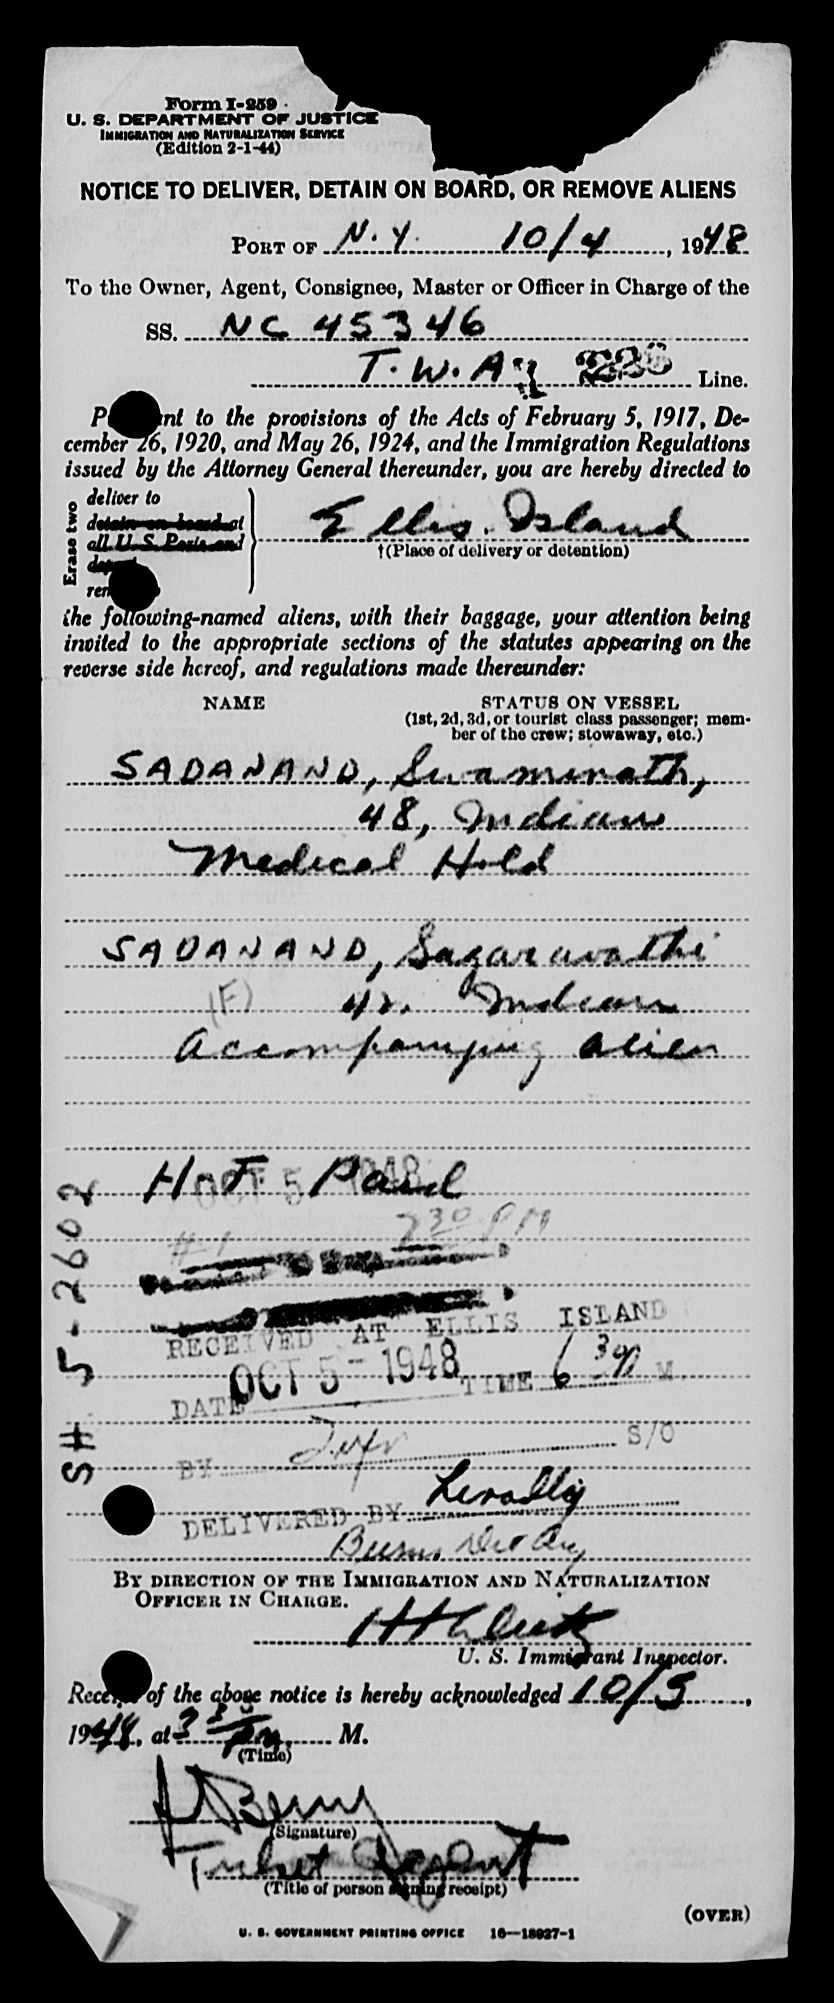 Form I-259
U. S. DEPARTMENT OF JUSTICE
IMMIGRATION AND NATURALIZATION SERVICE
(Edition 2-1-44)
NOTICE TO DELIVER, DETAIN ON BOARD, OR REMOVE ALIENS
PORT OF N. Y. 10/4, 1948
To the Owner, Agent, Consignee, Master or Officer in Charge of the
SS. NC 45346
T. W. A. Line.
P nt to the provisions of the Acts of February 5, 1917, De-
cember 26, 1920, and May 26, 1924, and the Immigration Regulations
issued by the Attorney General thereunder, you are hereby directed to
Erase two
deliver to
detain on board at
all U. S. Ports and
Ellis Island
†(Place of delivery or detention)
the following-named aliens, with their baggage, your attention being
invited to the appropriate sections of the statutes appearing on the
reverse side hereof, and regulations made thereunder:
NAME STATUS ON VESSEL
(1st, 2d, 3d, or tourist class passenger; mem-
ber of the crew; stowaway, etc.)
SADANAND, Swaminath,
48, Indian
Medical Hold
SADANAND, Sagaravathi
(F) 42. Indian
Accompanying alien
H.T. Paid
OCT 5 1948
#1 7 30 PM
SH 5-2602
RECEIVED AT ELLIS ISLAND
DATE OCT 5- 1948 TIME 6 30 P M
BY S/O
DELIVERED BY
BY DIRECTION OF THE IMMIGRATION AND NATURALIZATION
OFFICER IN CHARGE.
U. S. Immigrant Inspector.
Receipt of the above notice is hereby acknowledged 10/5,
1948, at 3 35 pm. M.
(Time)
Berry
(Signature)
Ticket Agent
(Title of person signing receipt)
(OVER)
U. S. GOVERNMENT PRINTING OFFICE 16—18927-1